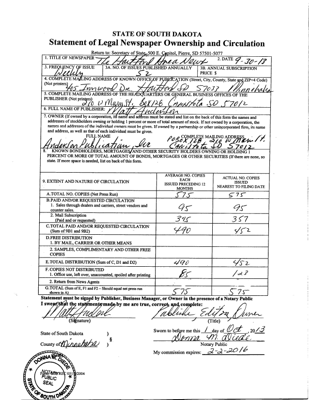 STATE OF SOUTH DAKOTA
Statement of Legal Newspaper Ownership and Circulation
Return to: Secretary of State, 500 E. Capitol, Pierre, SD 57501-5077
1. TITLE OF NEWSPAPER The Hartford Area News 2. DATE 9-30-13
3. FREQUENCY OF ISSUE Weekly 3A. NO. OF ISSUES PUBLISHED ANNUALLY 52 3B. ANNUAL SUBSCRIPTION PRICE $
4. COMPLETE MAILING ADDRESS OF KNOWN OFFICE OF PUBLICATION (Street, City, County, State and ZIP+4 Code)
(Not printers) Hartford SD 57033 Minnehaha
5. COMPLETE MAILING ADDRESS OF THE HEADQUARTERS OR GENERAL BUSINESS OFFICES OF THE
PUBLISHER (Not printer) Box 126, Canistota SD 57012
6. FULL NAME OF PUBLISHER Matt Anderson
7. OWNER (If owned by a corporation, its name and address must be stated and list on the back of this form the names and
addresses of stockholders owning or holding 1 percent or more of total amount of stock. If not owned by a corporation, the
names and address of the individual owners must be given. If owned by a partnership or other unincorporated firm, its name
and address, as well as that of each individual must be given.
FULL NAME COMPLETE MAILING ADDRESS
Anderson Publications, Inc Canistota SD 57012
8. KNOWN BONDHOLDERS, MORTGAGEES AND OTHER SECURITY HOLDERS OWNING OR HOLDING 1
PERCENT OR MORE OF TOTAL AMOUNT OF BONDS, MORTGAGES OR OTHER SECURITIES (If there are none, so
state. If more space is needed, list on back of this form.
9. EXTENT AND NATURE OF CIRCULATION
AVERAGE NO. COPIES EACH ISSUED PRECEDING 12 MONTHS
ACTUAL NO. COPIES ISSUED NEAREST TO FILING DATE
A. TOTAL NO. COPIES (Net Press Run) 575 575
B. PAID AND/OR REQUESTED CIRCULATION
1. Sales through dealers and carriers, street vendors and
counter sales. 95 95
2. Mail Subscription
(Paid and or requested) 395 357
C. TOTAL PAID AND/OR REQUESTED CIRCULATION
(Sum of 9B1 and 9B2) 490 452
D. FREE DISTRIBUTION
1. BY MAIL, CARRIER OR OTHER MEANS
2. SAMPLES, COMPLIMENTARY AND OTHER FREE
COPIES
E. TOTAL DISTRIBUTION (Sum of C, D1 and D2) 490 452
F. COPIES NOT DISTRIBUTED
1. Office use, left over, unaccounted, spoiled after printing 85 123
2. Return from News Agents
G. TOTAL (Sum of E, F1 and F2 - Should equal net press run
shown in A) 575 575
Statement must be signed by Publisher, Business Manager, or Owner in the presence of a Notary Public
I swear that the statements made by me are true, correct, and complete:
Matt Anderson Publisher, Editor, Owner
(Signature) (Title)
State of South Dakota ) Sworn to before me this 1 day of Oct, 2013
County of Minnehaha ) Notary Public
My commission expires: 2-2-2016
PUBLIC
SEAL